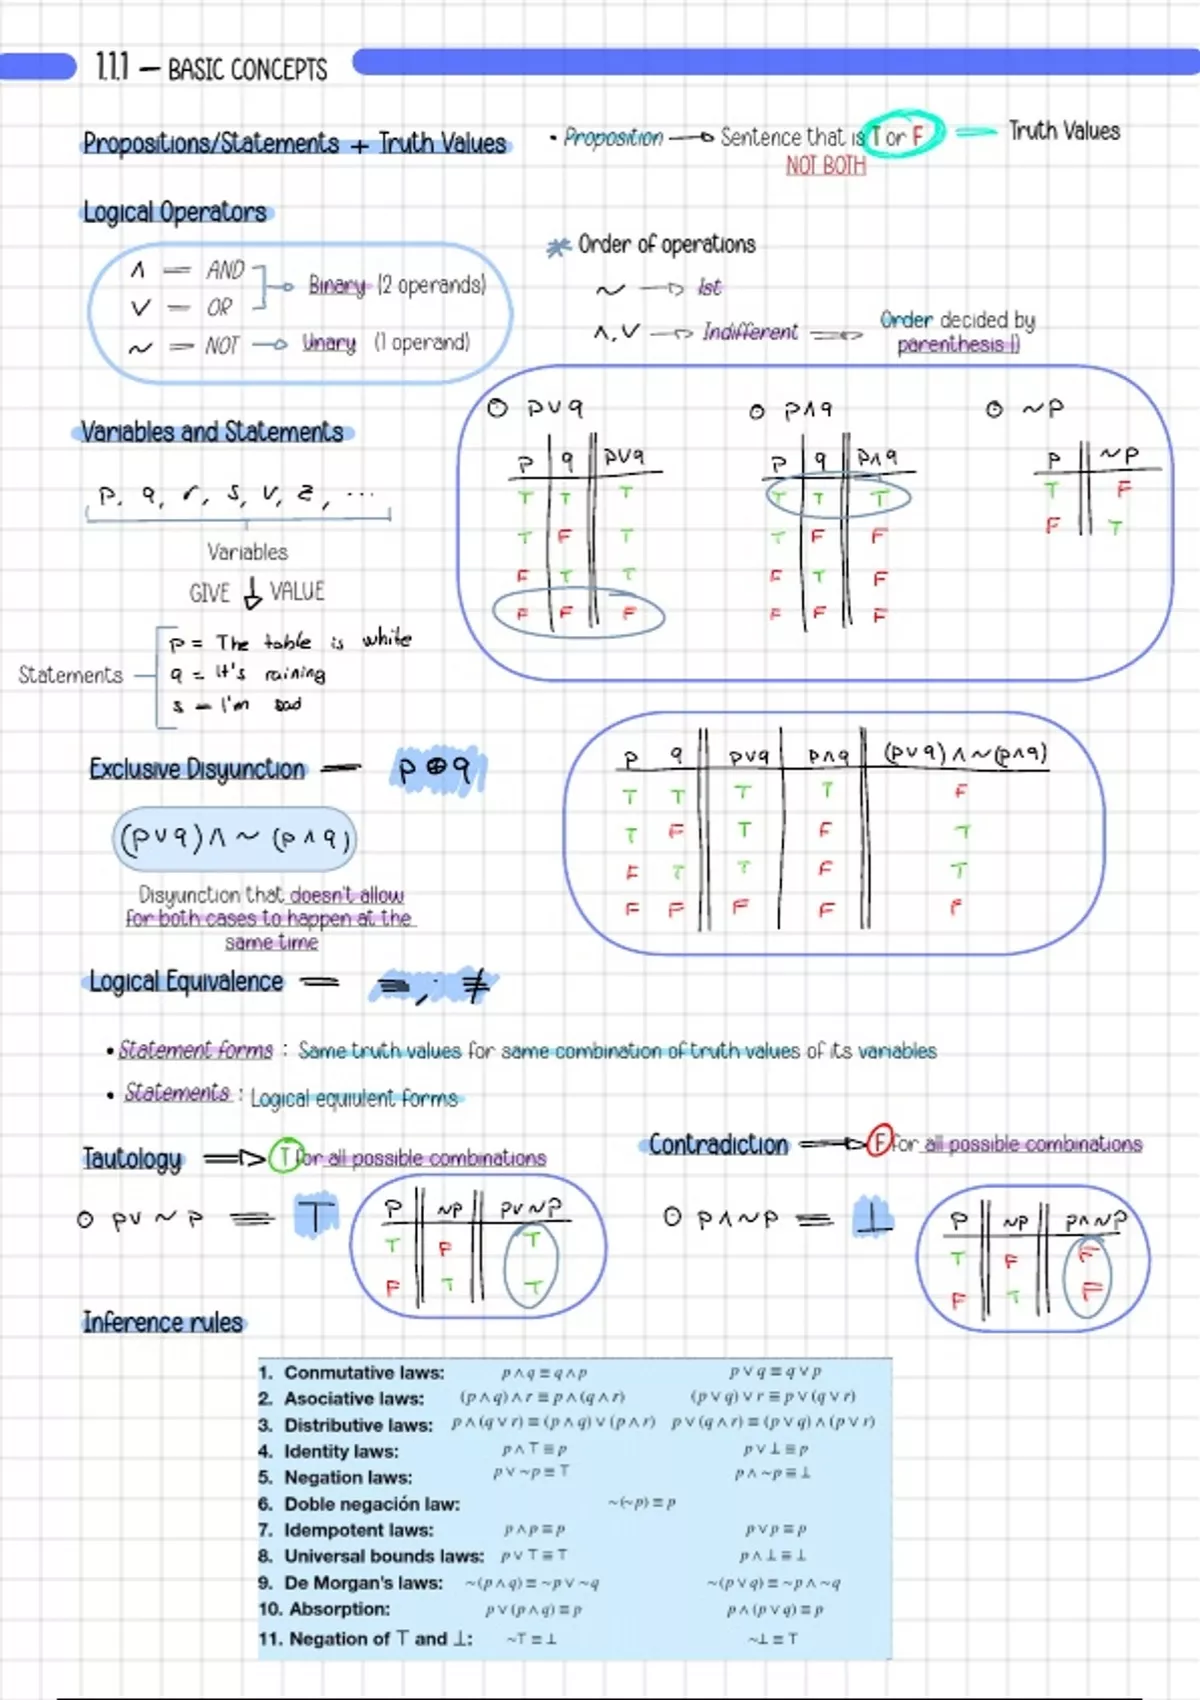 1.1.1 — BASIC CONCEPTS
Propositions/Statements + Truth Values
• Proposition → Sentence that is T or F = Truth Values
NOT BOTH
Logical Operators
∧ = AND
∨ = OR
Binary (2 operands)
~ = NOT → Unary (1 operand)
* Order of operations
~ → 1st
∧,∨ → Indifferent ⇒ Order decided by
parenthesis ()
Variables and Statements
p, q, r, s, v, z, ...
Variables
GIVE ↓ VALUE
Statements
p = The table is white
q = It's raining
s = I'm sad
○ p∨q
p q p∨q
T T T
T F T
F T T
F F F
○ p∧q
p q p∧q
T T T
T F F
F T F
F F F
○ ~p
p ~p
T F
F T
Exclusive Disyunction — p⊕q
(p∨q)∧~(p∧q)
Disyunction that doesn't allow
for both cases to happen at the
same time
p q p∨q p∧q (p∨q)∧~(p∧q)
T T T T F
T F T F T
F T T F T
F F F F F
Logical Equivalence = ≡, ≢
• Statement forms : Same truth values for same combination of truth values of its variables
• Statements : Logical equiulent forms
Tautology ⇒ T for all possible combinations
○ p∨~p ≡ ⊤
p ~p p∨~p
T F T
F T T
Contradiction ⇒ F for all possible combinations
○ p∧~p = ⊥
p ~p p∧~p
T F F
F T F
Inference rules
1. Conmutative laws: p∧q≡q∧p p∨q≡q∨p
2. Asociative laws: (p∧q)∧r≡p∧(q∧r) (p∨q)∨r≡p∨(q∨r)
3. Distributive laws: p∧(q∨r)≡(p∧q)∨(p∧r) p∨(q∧r)≡(p∨q)∧(p∨r)
4. Identity laws: p∧⊤≡p p∨⊥≡p
5. Negation laws: p∨~p≡⊤ p∧~p≡⊥
6. Doble negación law: ~(~p)≡p
7. Idempotent laws: p∧p≡p p∨p≡p
8. Universal bounds laws: p∨⊤≡⊤ p∧⊥≡⊥
9. De Morgan's laws: ~(p∧q)≡~p∨~q ~(p∨q)≡~p∧~q
10. Absorption: p∨(p∧q)≡p p∧(p∨q)≡p
11. Negation of ⊤ and ⊥: ~⊤≡⊥ ~⊥≡⊤